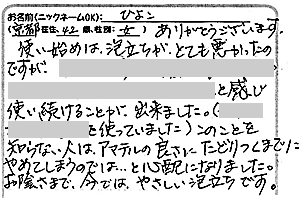 お名前(ニックネームOK): ひよこ
(京都在住、42歳、性別:女) ありがとうございます。
使い始めは、泡立ちが、とても悪かったの
ですが、
と感じ
使い続けることが、出来ました。(
を使っていました)このことを
知らない人は、アマテルの良さにたどりつくまでに
やめてしまうのでは…と心配になりました。
お陰さまで、今では、やさしい泡立ちです。